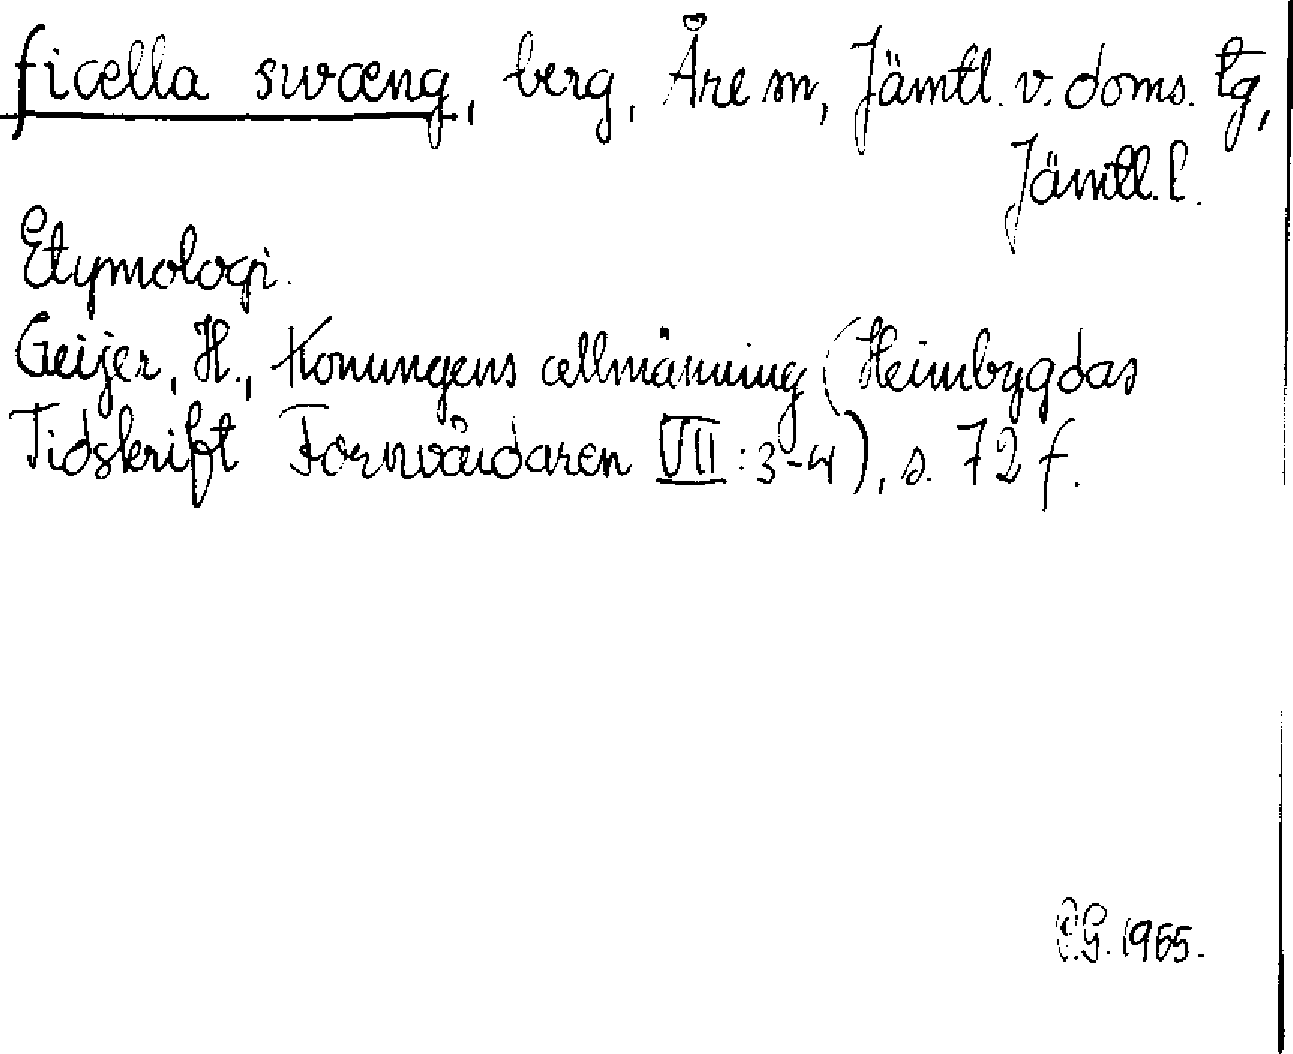 ficella swæng, berg, Åre sn, Jämtl. v. doms. tg,
Jämtl. l.
Etymologi.
Geijer, H., Konungens allmänning (Heimbygdas
Tidskrift Fornvårdaren VII:3-4), s. 72 f.
G. 1965.